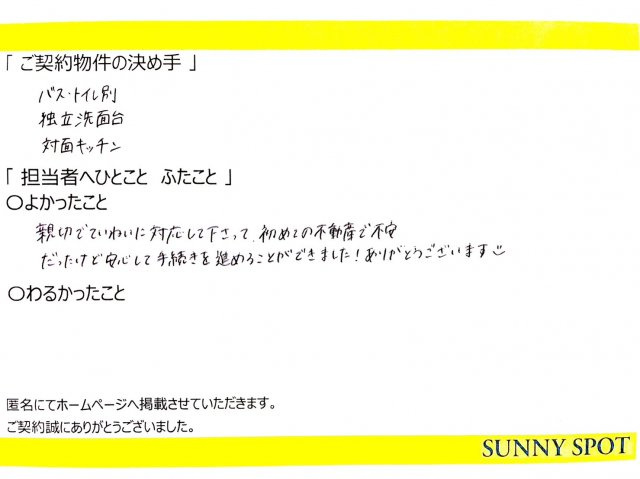 「 ご契約物件の決め手 」
バス・トイレ別
独立洗面台
対面キッチン
「 担当者へひとこと ふたこと 」
○よかったこと
親切でていねいに対応して下さって、初めての不動産で不安
だったけど安心して手続きを進めることができました!ありがとうございます
○わるかったこと
匿名にてホームページへ掲載させていただきます。
ご契約誠にありがとうございました。
SUNNY SPOT